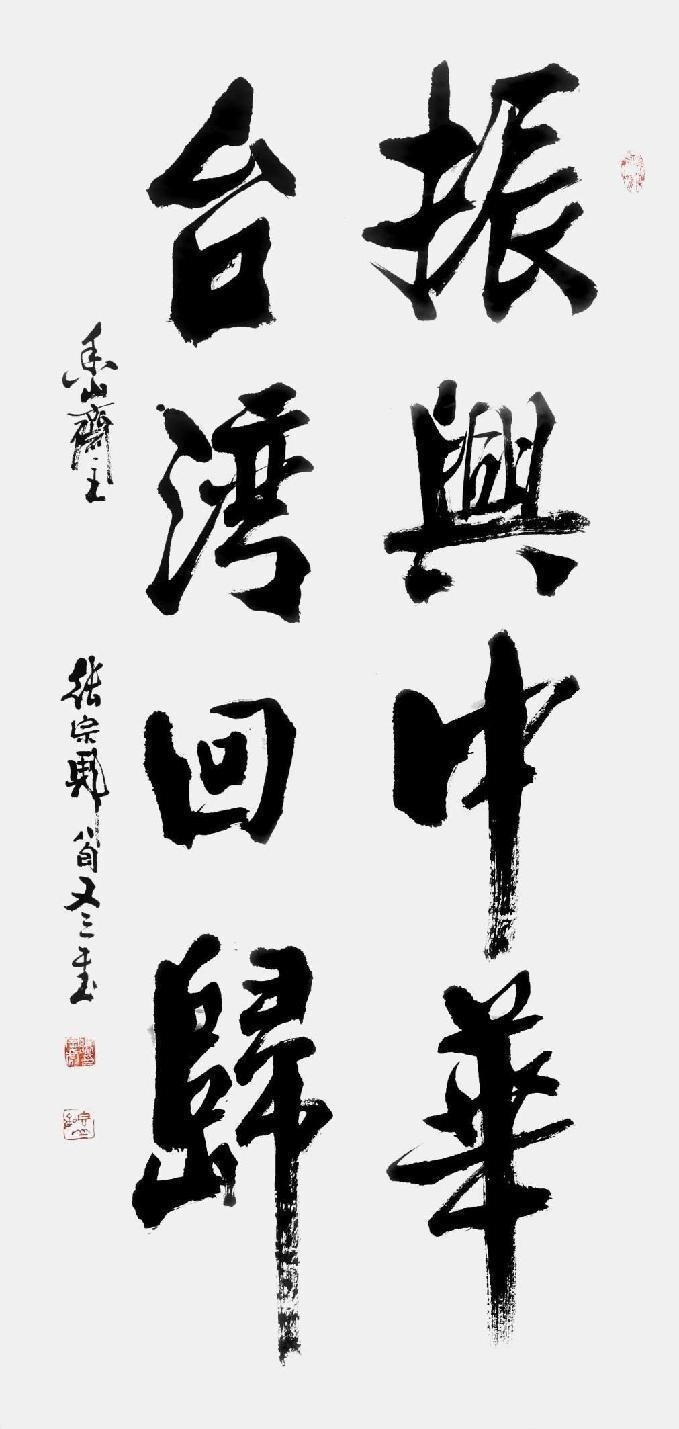 振興中華
台湾回歸
香山齋主
張宗彪 八旬又三书